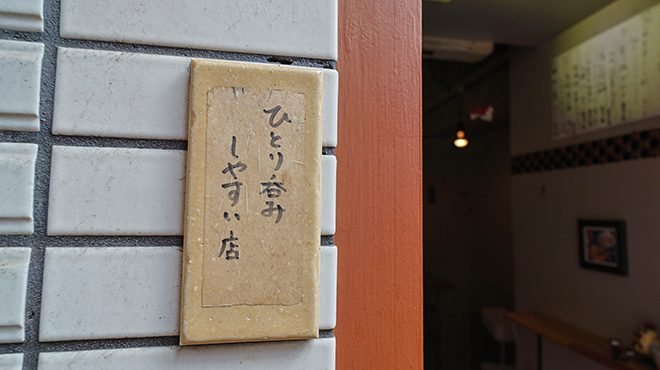 ひとり呑み
しやすい店